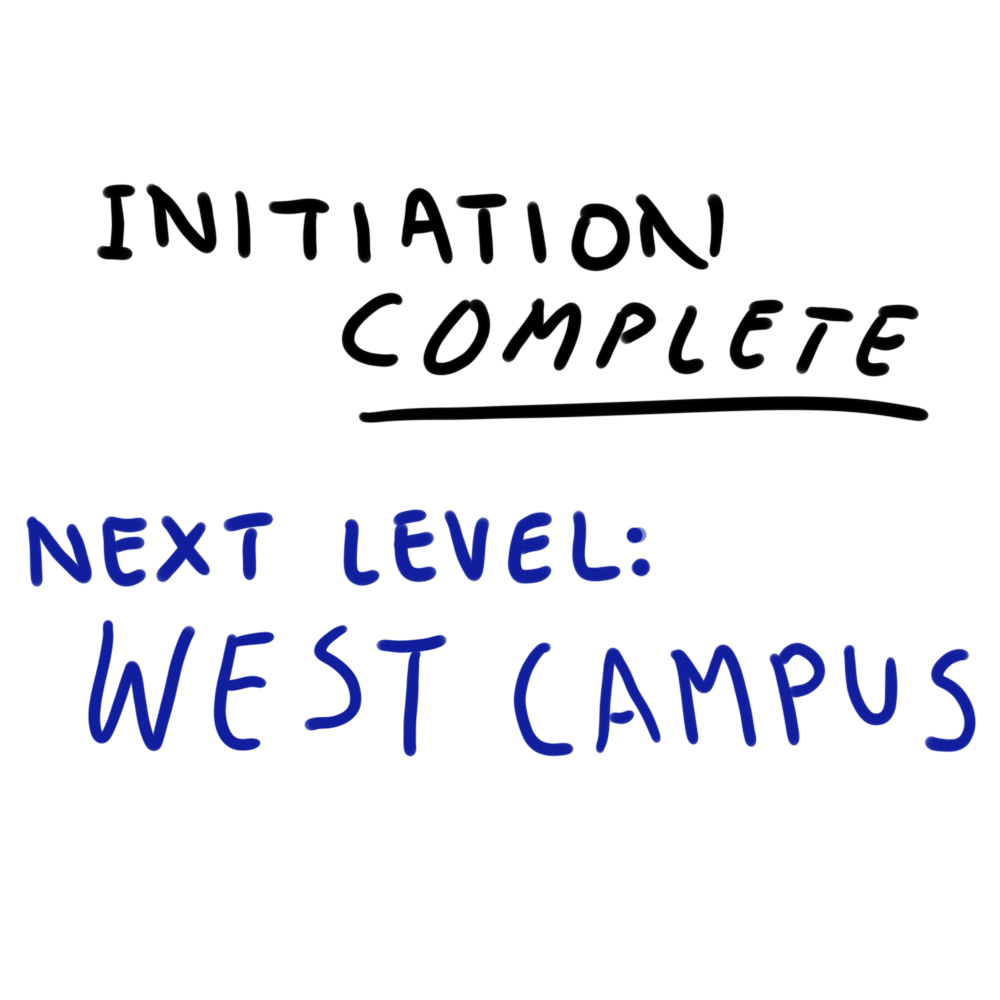 INITIATION
COMPLETE
NEXT LEVEL:
WEST CAMPUS